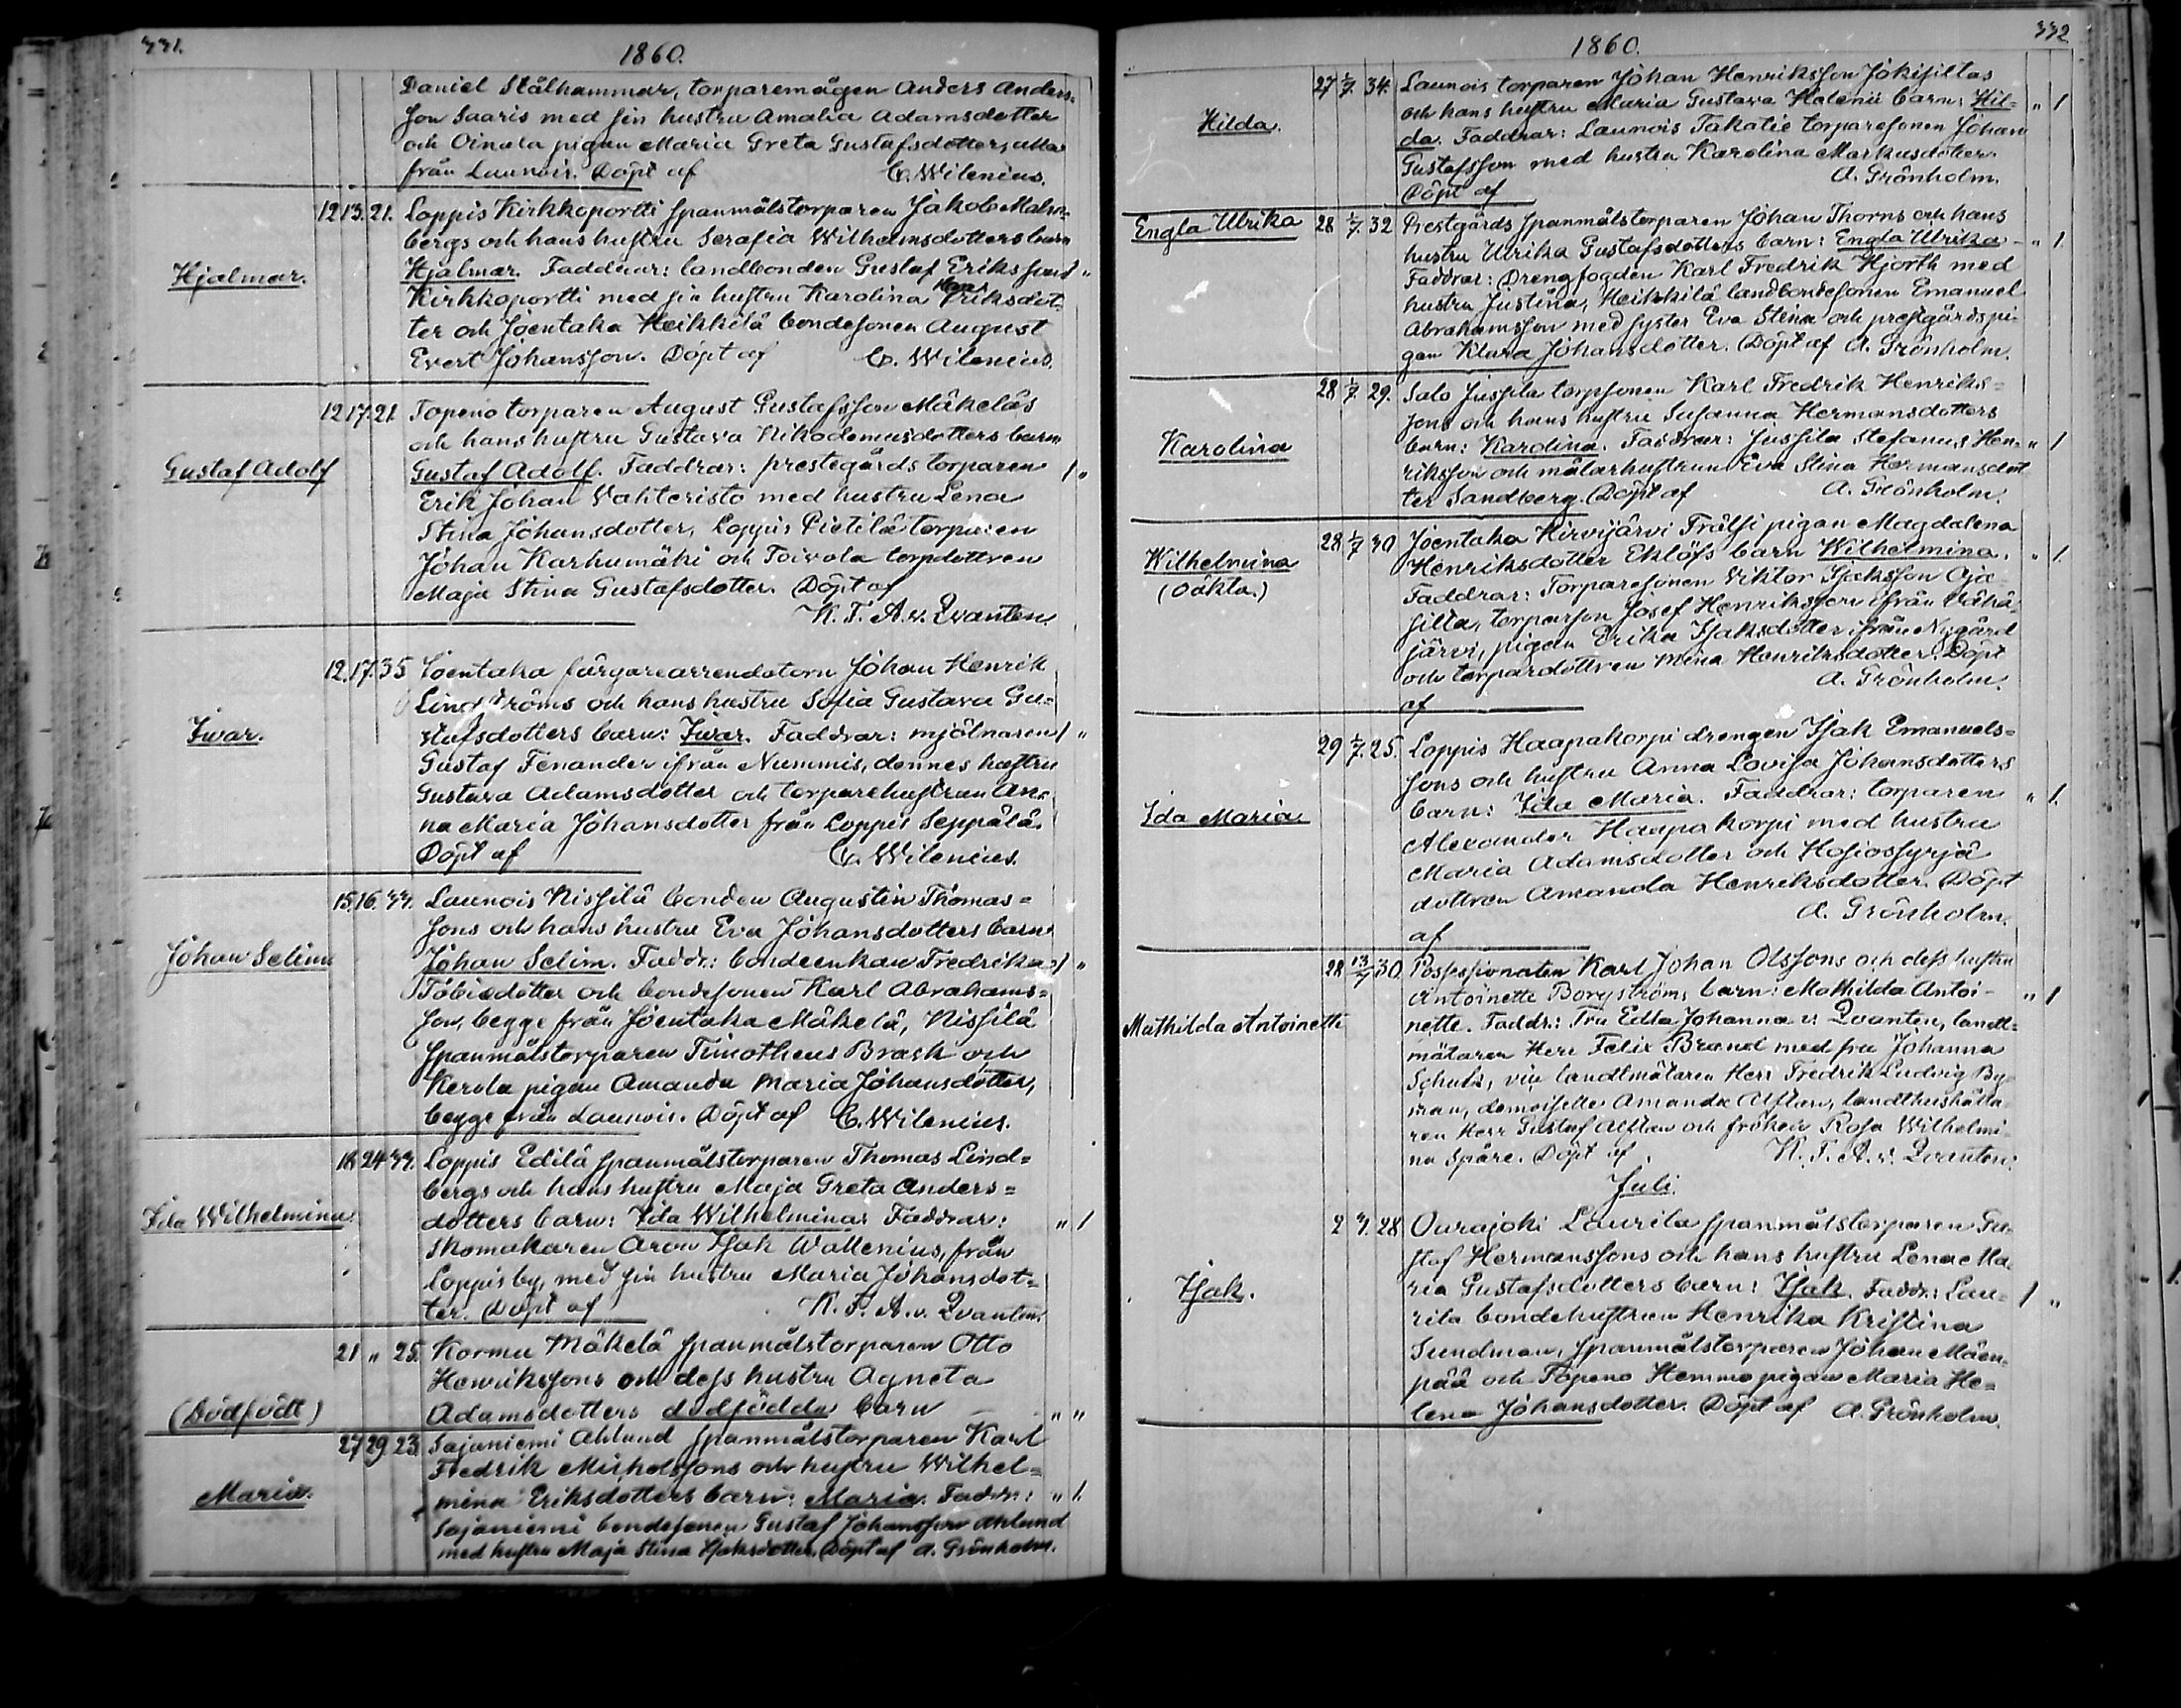 331.
1860.
Daniel Stålhammar, torparemågen Anders Anders-
son Saaris med sin hustru Amalia Adamsdotter
och Oinala pigan Maria Greta Gustafsdotter, alla
från Launois. Döpt af C. Wilenius.
12 13. 21. Loppis Kirkkoportti spanmålstorparen Jakob Malm-
bergs och hans hustru Serafia Wilhelmsdotters barn
Hjalmar. Hjalmar. Faddrar: landbonden Gustaf Erikssons 1 "
Kirkkoportti med sin hustru Karolina Eriksdot-
ter och Joentaka Heikkilä bondesonen August
Evert Johansson. Döpt af C. Wilenius.
12 17. 21 Topeno torparen August Gustafsson Mäkeläs
och hans hustru Gustava Nikodemusdotters barn
Gustaf Adolf Gustaf Adolf. Faddrar: prestegårds torparen 1 "
Erik Johan Vahteristo med hustru Lena
Stina Johansdotter, Loppis Pietilä torparen
Johan Karhumäki och Toivola torpdottren
Maja Stina Gustafsdotter. Döpt af
K. F. A. v. Qvanten.
12. 17. 35 Joentaka färgarearrendatorn Johan Henrik
Lindströms och hans hustru Sofia Gustava Gu-
Iwar. stafsdotters barn: Iwar. Faddrar: mjölnaren 1 "
Gustaf Fenander ifrån Nummis, dennes hustru
Gustava Adamsdotter och torparehustrun An-
na Maria Johansdotter från Loppis Seppälä.
Döpt af C. Wilenius.
15. 16. 33. Launois Nissilä bonden Augustin Thomas-
sons och hans hustru Eva Johansdotters barn
Johan Selim Johan Selim. Faddr.: bondeenkan Fredrika 1 "
Tobiedotter och bondesonen Karl Abrahams-
son, begge från Joentaka Mäkelä, Nissilä
spanmålstorparen Timotheus Brask och
Kerola pigan Amanda Maria Johansdotter,
begge från Launois. Döpt af C. Wilenius.
18 24 33. Loppis Edilä spanmålstorparen Thomas Lind-
bergs och hans hustru Maja Greta Anders-
Ida Wilhelmina. dotters barn: Ida Wilhelmina. Faddrar: " 1
Skomakaren Aron Isak Wallenius, från
Loppis by, med sin hustru Maria Johansdot-
ter. Döpt af K. F. A. v. Qvanten.
21 " 25. Kormu Mäkelä spanmålstorparen Otto
Henrikssons och dess hustru Agneta
(Dödfödt) Adamsdotters dödfödda barn " "
27 29. 23. Sajaniemi Ahlund spanmålstorparen Karl
Fredrik Michelssons och hustru Wilhel-
Maria. mina Eriksdotters barn: Maria. Faddr.: " 1.
Sajaniemi bondesonen Gustaf Johansson Ahlund
med hustru Maja Stina Isaksdotter. Döpt af A. Grönholm.
332
1860.
27 1/7. 34. Launois torparen Johan Henriksson Jokisiltas
och hans hustru Maria Gustava Helenii barn: Hil- " 1
Hilda. da. Faddrar: Launois Takatie torparesonen Johan
Gustafsson med hustru Karolina Markusdotter.
Döpt af A. Grönholm.
Engla Ulrika 28 1/7. 32 Prestgårds spanmålstorparen Johan Thorns och hans
hustru Ulrika Gustafsdotters barn: Engla Ulrika - " 1.
Faddrar: Drengfogden Karl Fredrik Hjorth med
hustru Justina, Heikkilä landbondesonen Emanuel
Abrahamsson med syster Eva Stina och prestgårds pi-
gan Klara Johansdotter. Döpt af A. Grönholm.
28 1/7. 29. Salo Jussila torpsonen Karl Fredrik Henriks-
sons och hans hustru Susanna Hermansdotters
Karolina barn: Karolina. Faddrar: Jussila Stefanus Hen- " 1
riksson och målarhustrun Eva Stina Hermansdot
ter Sandberg. Döpt af A. Grönholm.
28 1/7 30 Joentaka Hirvijärvi Frälsi pigan Magdalena
Wilhelmina Henriksdotter Eklöfs barn Wilhelmina. " 1.
(oäkta.) Faddrar: Torparesonen Viktor Isaksson Oja-
silta, torparson Josef Henriksson ifrån Vähä
järvi, pigan Erika Isaksdotter ifrån Nygård
och torpardottren Mina Henriksdotter. Döpt
af A. Grönholm.
29 1/7. 25. Loppis Haapakorpi drengen Isak Emanuels-
sons och hustru Anna Lovisa Johansdotters
Ida Maria barn: Ida Maria. Faddrar: torparen " 1.
Alexander Haapakorpi med hustru
Maria Adamsdotter och Hosiossyrjä
dottren Amanda Henriksdotter. Döpt
af A. Grönholm.
28 13/7 30 Possessionaten Karl Johan Olssons och dess hustru
Antoinette Borgströms barn: Mathilda Antoi- " 1
Mathilda Antoinette nette. Faddr.: Fru Edla Johanna v. Qvanten, landt-
mätaren Herr Felix Brand med fru Johanna
Schulz, vice landtmätaren Herr Fredrik Ludvig By-
man, demoiselle Amanda Alftan, landthushålla-
ren Herr Gustaf Alftan och fröken Rosa Wilhelmi-
na Spåre. Döpt af K. F. A. v. Qvanten.
Juli.
2 3. 28 Ourajoki Laurila spanmålstorparen Gu-
staf Hermanssons och hans hustru Lena Ma-
Isak. ria Gustafsdotters barn: Isak. Faddr.: Lau- 1 "
rila bondehustrun Henrika Kristina
Sundman, spanmålstorparen Johan Mäen-
pää och Topeno Hemmo pigan Maria He-
lena Johansdotter. Döpt af A. Grönholm.